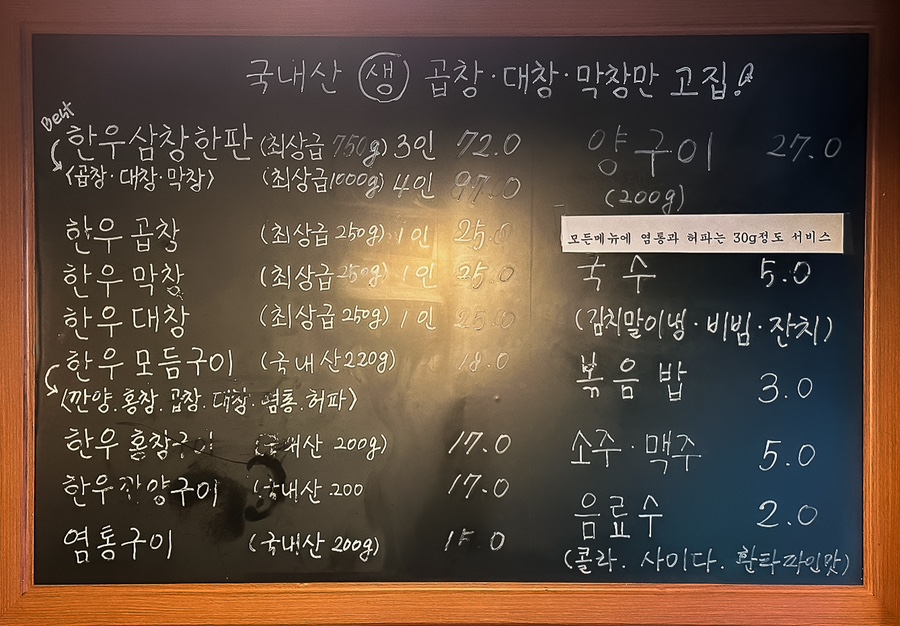 국내산 생 곱창·대창·막창만 고집!
Best
한우삼창한판 (최상급 750g) 3인 72.0
<곱창·대창·막창> (최상급1000g) 4인 97.0
한우 곱창 (최상급 250g) 1인 25.0
한우 막창 (최상급 250g) 1인 25.0
한우 대창 (최상급 250g) 1인 25.0
한우 모듬구이 (국내산220g) 18.0
<깐양.홍창.곱창.대창.염통.허파>
한우 홍창구이 (국내산 200g) 17.0
한우 깐양구이 (국내산 200 17.0
염통구이 (국내산 200g) 15.0
양구이 27.0
(200g)
모든메뉴에 염통과 허파는 30g정도 서비스
국수 5.0
(김치말이냉·비빔·잔치)
볶음밥 3.0
소주·맥주 5.0
음료수 2.0
(콜라. 사이다. 환타파인맛)